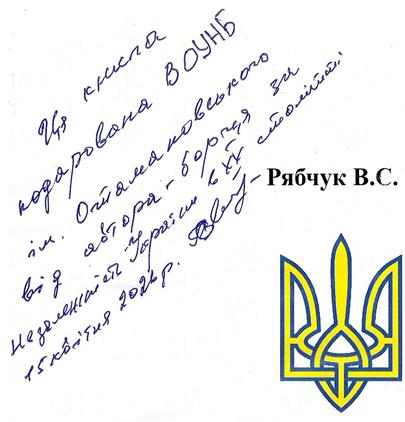 Ця книга
подарована ВОУНБ
ім. Отамановського
від автора - борця за
Незалежність України в ХХ столітті
15 квітня 2026 р.
Рябчук В.С.